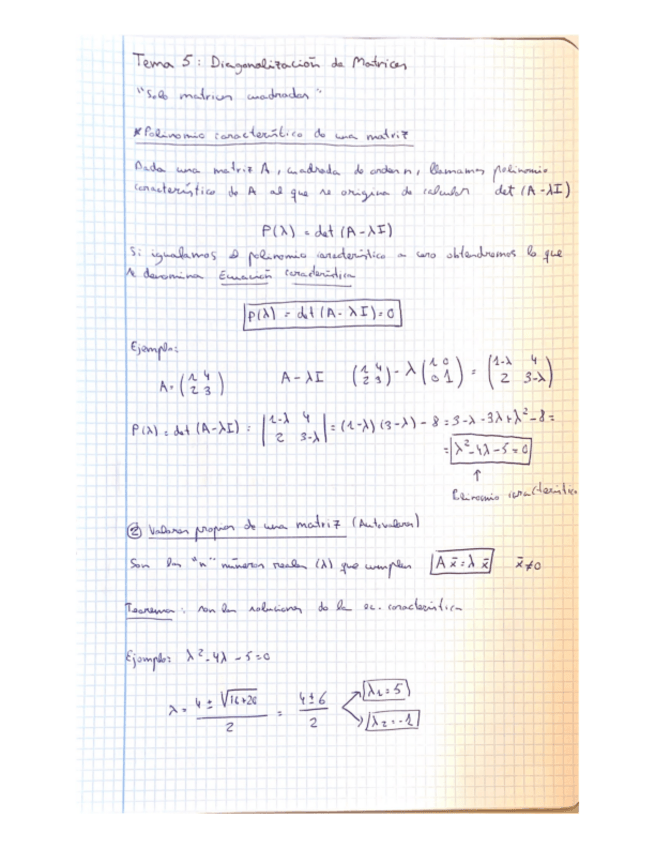 Tema 5: Diagonalización de Matrices
"Solo matrices cuadradas"
* Polinomio característico de una matriz
Dada una matriz A, cuadrada de orden n, llamamos polinomio
característico de A al que se origina de calcular det (A - λI)
P(λ) = det (A - λI)
Si igualamos el polinomio característico a cero obtendremos lo que
se denomina Ecuación característica
P(λ) = det (A - λI) = 0
Ejemplo:
A = (1 4 / 2 3) A - λI (1 4 / 2 3) - λ (1 0 / 0 1) = (1-λ 4 / 2 3-λ)
P(λ) = det (A-λI) = |1-λ 4 / 2 3-λ| = (1-λ)(3-λ) - 8 = 3-λ-3λ+λ²-8 =
= λ²-4λ-5=0
↑
Polinomio característico
② Valores propios de una matriz (Autovalores)
Son los "n" números reales (λ) que cumplen A x̄ = λ x̄ x̄≠0
Teorema: son las soluciones de la ec. característica
Ejemplo: λ²-4λ-5=0
λ = (4 ± √16+20) / 2 = (4±6) / 2 λ₁=5
λ₂=-1